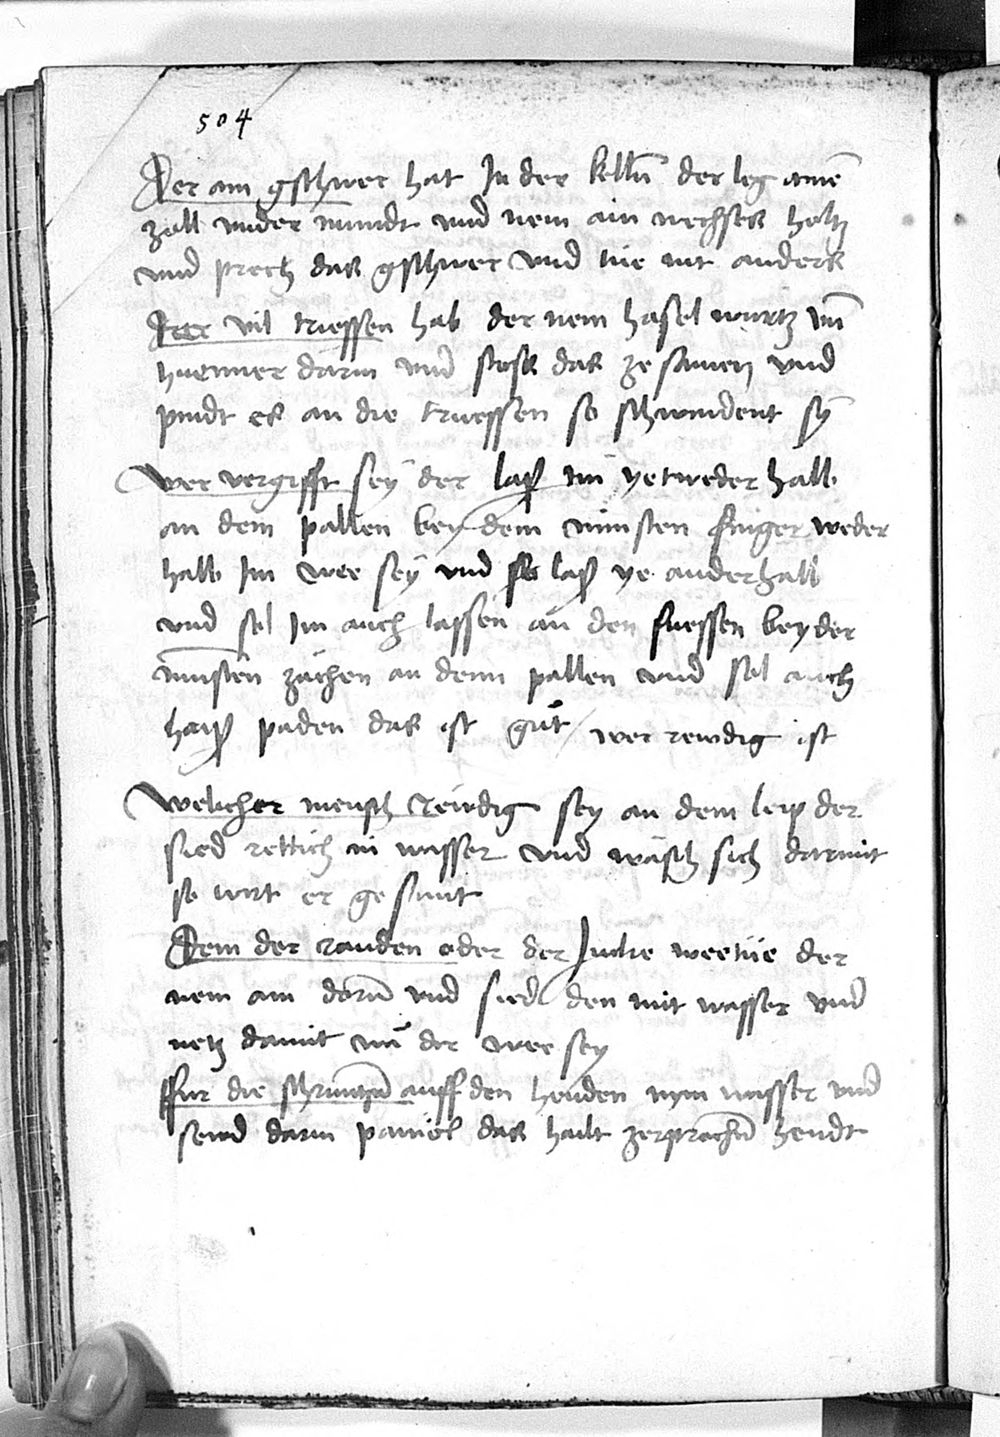 504
Der ain gschwer hat In der kelln̄ der leg ainē
zoll vnder mundt vnd nem ain wechses holtz
vnd prech das gschwer vnd tue nit anders
Der vil truessen hab der nem hasel wurtz vn̄
huenner darm vnd stoss das ze samen vnd
pindt es an die truessen so schwindent sÿ
Wer vergifft seÿ der lass im yetweder halb
an dem pallen bey dem minsten finger weder
halb Im wee seÿ vnd so lass ye anderhalb
vnd sol Im auch lassen an den fuessen bey der
minsten zächen an dem pallen vnd sol auch
haiss paden das ist gůt / wer rewdig ist
Welicher mensch Rewdig sey an dem leip der
sied rettich in wasser vnd wäsch sich darmit
so wirt er gesunt
Dem der rauden oder der Jucke wee tüe der
nem ain dorn̄ vnd sied den mit wasser vnd
netz damit wa der wee sey
ffur die schrunttn̄ auff den henden nym wasser vnd
sewd darin pamöl das hailt zerprochn̄ hendt